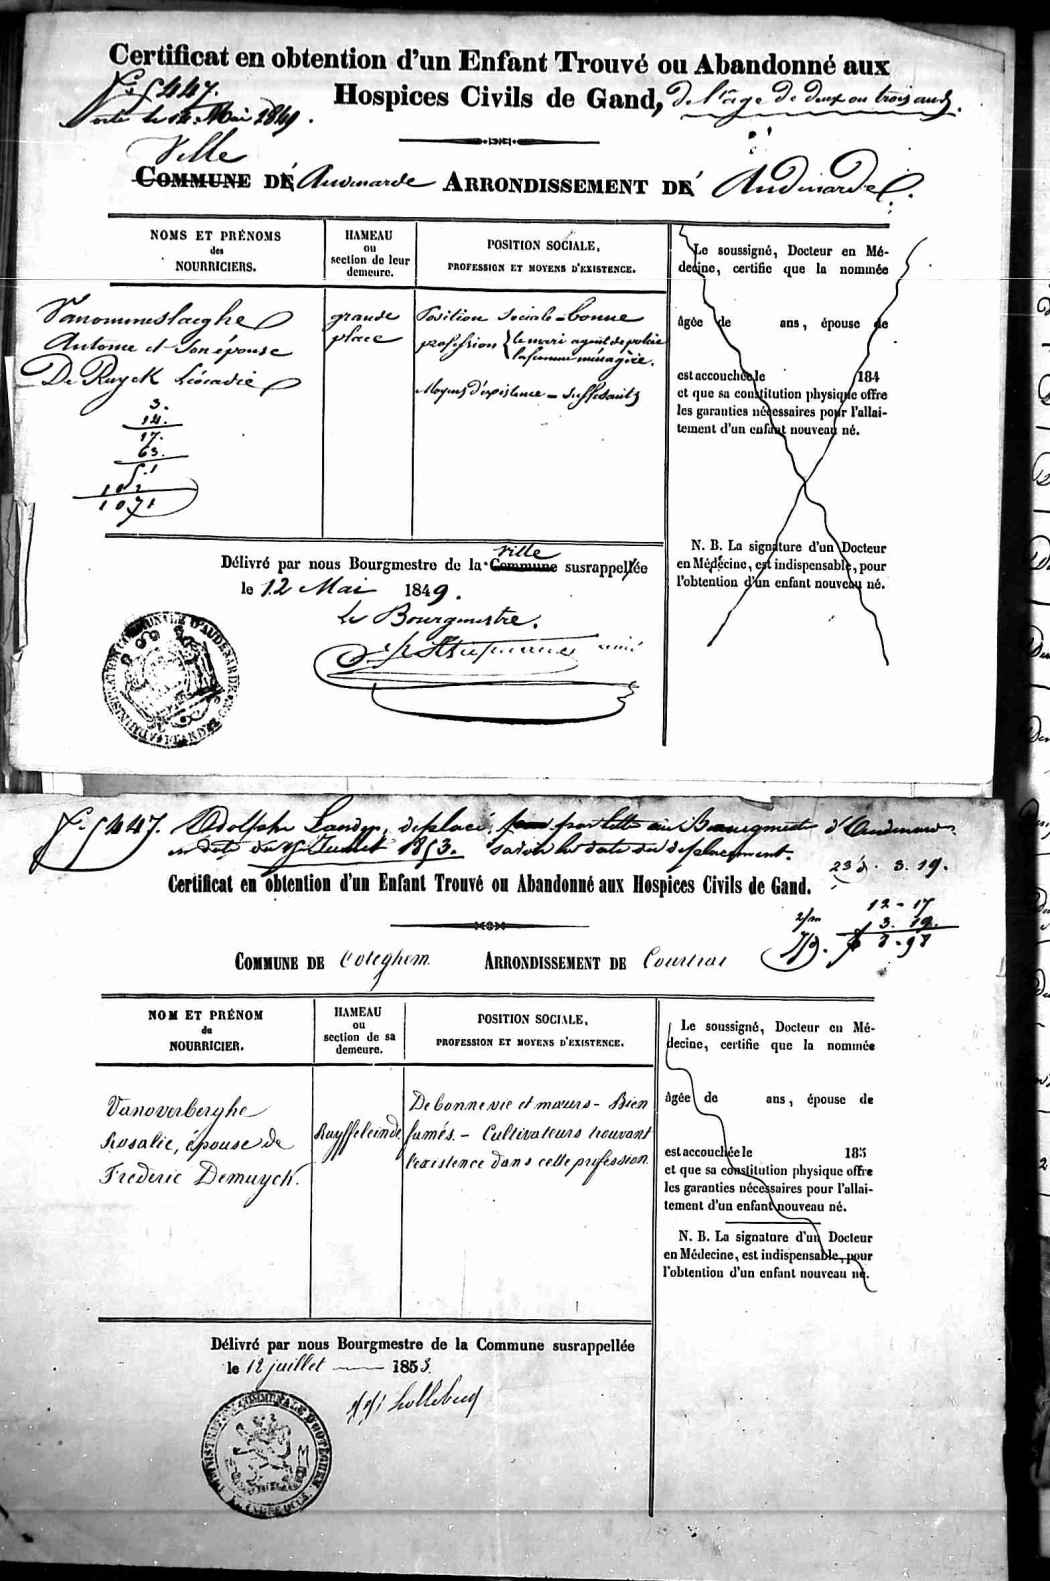 Certificat en obtention d'un Enfant Trouvé ou Abandonné aux
Hospices Civils de Gand, de l'âge de deux ou trois ans.
N.º 5447.
le 14 Mai 1849.
Ville
COMMUNE DE Audenarde ARRONDISSEMENT DE Audenarde.
NOMS ET PRÉNOMS
des
NOURRICIERS.
HAMEAU
ou
section de leur
demeure.
POSITION SOCIALE,
PROFESSION ET MOYENS D'EXISTENCE.
Vanommeslaeghe
Antoine et son épouse
De Ruyck Léocadie
3.
14.
17.
63.
51
102
1071
grande
place
Position sociale = bonne
profession { le mari agent de police
la femme ménagère.
Moyens d'existence = suffisants
Le soussigné, Docteur en Mé-
decine, certifie que la nommée
âgée de ans, épouse de
est accouchée le 184
et que sa constitution physique offre
les garanties nécessaires pour l'allai-
tement d'un enfant nouveau né.
N. B. La signature d'un Docteur
en Médecine, est indispensable, pour
l'obtention d'un enfant nouveau né.
Délivré par nous Bourgmestre de la Commune ville susrappelée
le 12 Mai 1849.
Le Bourgmestre.
N.º 5447. Adolphe Landen, déplacé, par lettre au Bourgmestre d'Audenarde
en date du Juillet 1853. la date du déplacement.
23 d. 3.19.
12-17
3.19.
Certificat en obtention d'un Enfant Trouvé ou Abandonné aux Hospices Civils de Gand.
COMMUNE DE Oteghem ARRONDISSEMENT DE Courtrai
NOM ET PRÉNOM
du
NOURRICIER.
HAMEAU
ou
section de sa
demeure.
POSITION SOCIALE,
PROFESSION ET MOYENS D'EXISTENCE.
Vanoverberghe
Rosalie, épouse de
Frédéric Demuyck.
Ruyffeleinde
De bonne vie et mœurs - Bien
famés. - Cultivateurs trouvant
l'existence dans cette profession
Le soussigné, Docteur en Mé-
decine, certifie que la nommée
âgée de ans, épouse de
est accouchée le 185
et que sa constitution physique offre
les garanties nécessaires pour l'allai-
tement d'un enfant nouveau né.
N. B. La signature d'un Docteur
en Médecine, est indispensable, pour
l'obtention d'un enfant nouveau né.
Délivré par nous Bourgmestre de la Commune susrappellée
le 12 juillet 1853